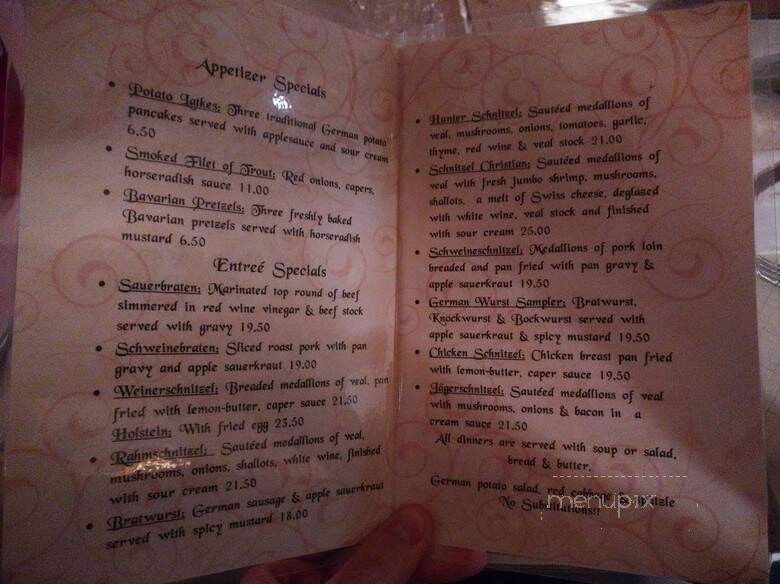 Appetizer Specials
Potato Latkes: Three traditional German potato
pancakes served with applesauce and sour cream
6.50
Smoked Filet of Trout: Red onions, capers,
horseradish sauce 11.00
Bavarian Pretzels: Three freshly baked
Bavarian pretzels served with horseradish
mustard 6.50
Entreé Specials
Sauerbraten: Marinated top round of beef
simmered in red wine vinegar & beef stock
served with gravy 19.50
Schweinebraten: Sliced roast pork with pan
gravy and apple sauerkraut 19.00
Weinerschnitzel: Breaded medallions of veal, pan
fried with lemon-butter, caper sauce 21.50
Holstein: With fried egg 23.50
Rahmschnitzel: Sautéed medallions of veal,
mushrooms, onions, shallots, white wine, finished
with sour cream 21.50
Bratwurst: German sausage & apple sauerkraut
served with spicy mustard 18.00
Hunter Schnitzel: Sautéed medallions of
veal, mushrooms, onions, tomatoes, garlic,
thyme, red wine & veal stock 21.00
Schnitzel Christian: Sautéed medallions of
veal with fresh jumbo shrimp, mushrooms,
shallots, a melt of Swiss cheese, deglazed
with white wine, veal stock and finished
with sour cream 25.00
Schweineschnitzel: Medallions of pork loin
breaded and pan fried with pan gravy &
apple sauerkraut 19.50
German Wurst Sampler: Bratwurst,
Knockwurst & Bockwurst served with
apple sauerkraut & spicy mustard 19.50
Chicken Schnitzel: Chicken breast pan fried
with lemon-butter, caper sauce 19.50
Jägerschnitzel: Sautéed medallions of veal
with mushrooms, onions & bacon in a
cream sauce 21.50
All dinners are served with soup or salad,
bread & butter,
German potato salad, red cabbage & spatzle
No Substitutions!!
menupix